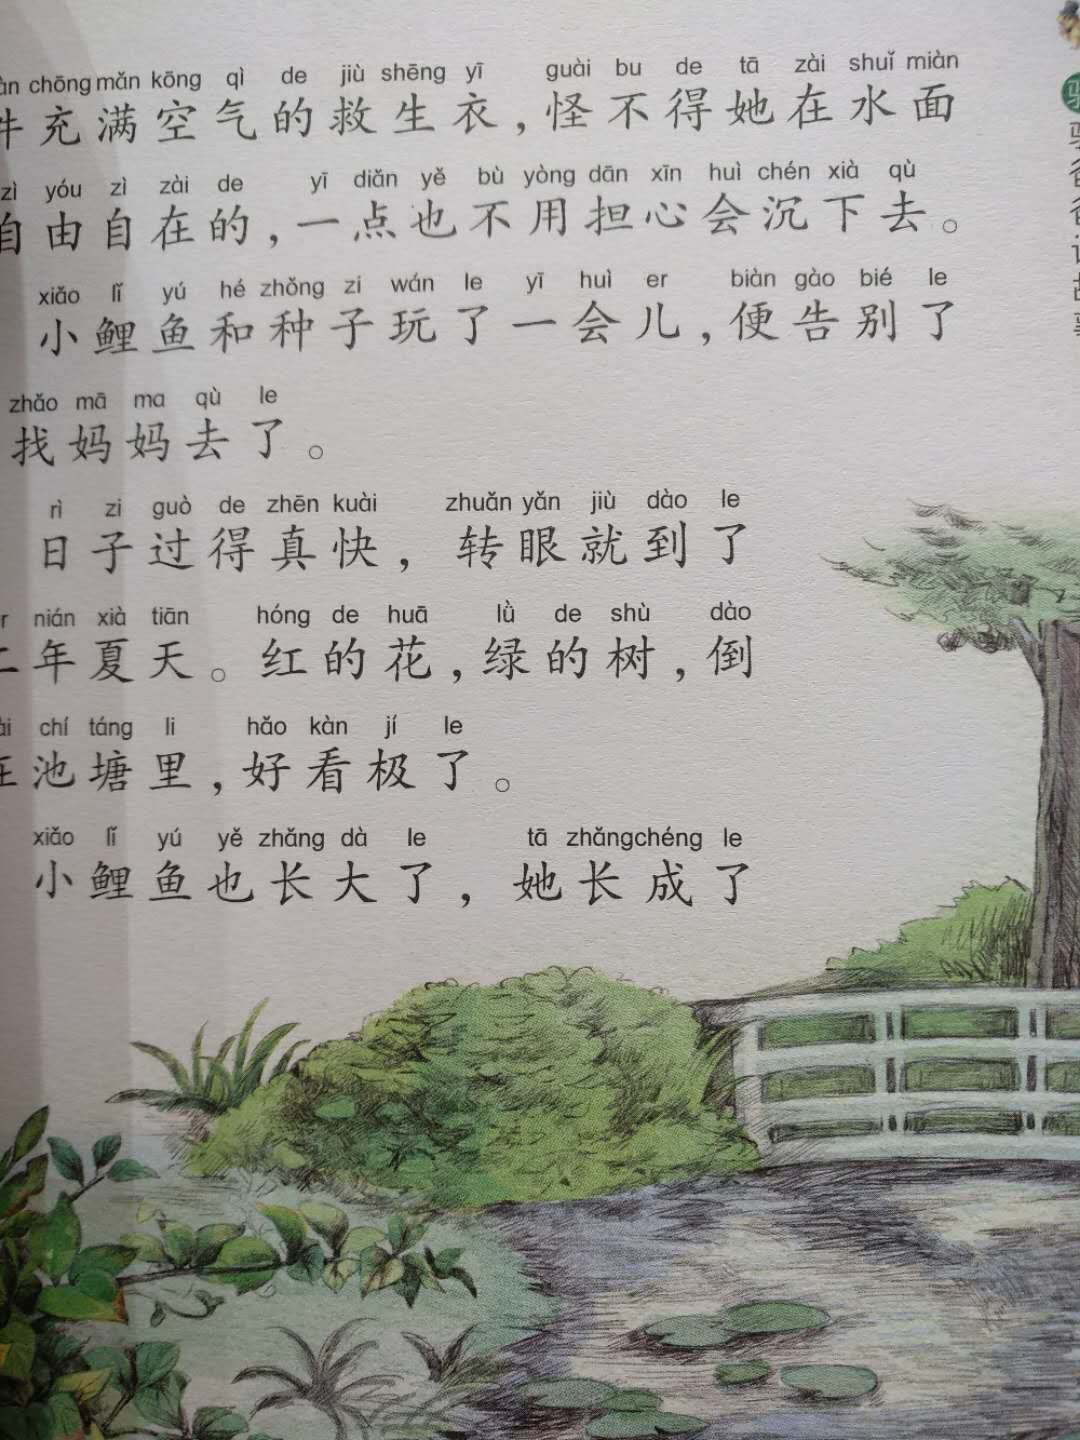 chōng mǎn kōng qì de jiù shēng yī guài bu de tā zài shuǐ miàn
充满空气的救生衣，怪不得她在水面
zì yóu zì zài de yī diǎn yě bù yòng dān xīn huì chén xià qù
自由自在的，一点也不用担心会沉下去。
xiǎo lǐ yú hé zhǒng zi wán le yī huì er biàn gào bié le
小鲤鱼和种子玩了一会儿，便告别了
zhǎo mā ma qù le
找妈妈去了。
rì zi guò de zhēn kuài zhuǎn yǎn jiù dào le
日子过得真快，转眼就到了
nián xià tiān hóng de huā lǜ de shù dào
年夏天。红的花，绿的树，倒
chí táng li hǎo kàn jí le
池塘里，好看极了。
xiǎo lǐ yú yě zhǎng dà le tā zhǎng chéng le
小鲤鱼也长大了，她长成了